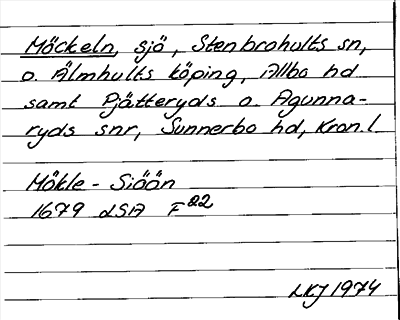 Möckeln, sjö, Stenbrohults sn,
o. Älmhults köping, Allbo hd
samt Pjätteryds o. Agunna-
ryds snr, Sunnerbo hd, Kron.l.
Mökle - Siöön
1679 LSA F22
LKJ 1974